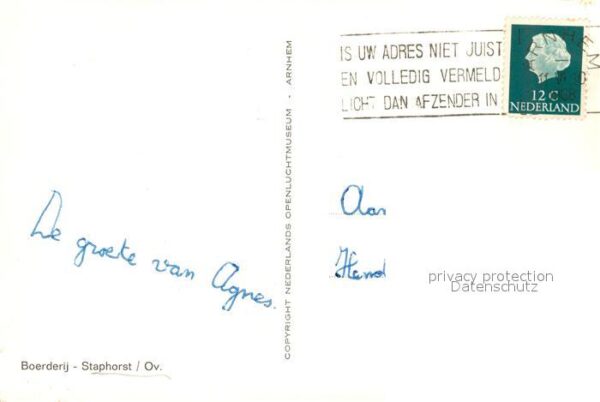 IS UW ADRES NIET JUIST
EN VOLLEDIG VERMELD
LICHT DAN AFZENDER IN
ARNHEM
12 C
NEDERLAND
De groete van Agnes.
Aan
Hend
privacy protection
Datenschutz
COPYRIGHT NEDERLANDS OPENLUCHTMUSEUM - ARNHEM
Boerderij - Staphorst / Ov.